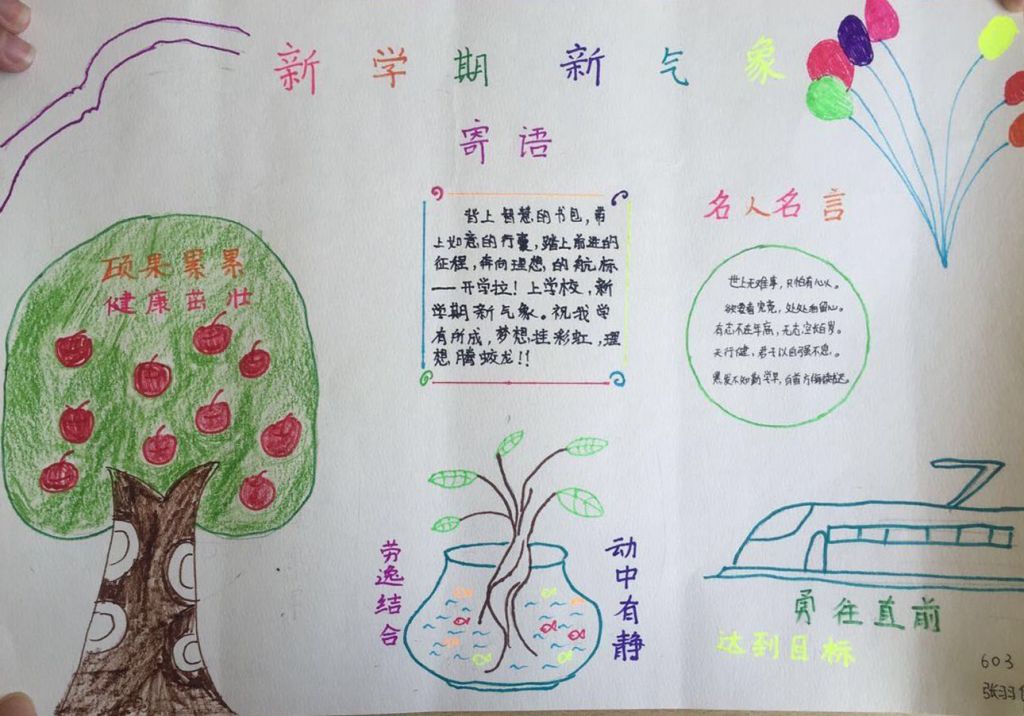 新学期新气象
寄语
背上智慧的书包,带
上如意的行囊,踏上前进的
征程,奔向理想的航标
——开学拉!上学校,新
学期新气象。祝我学
有所成,梦想挂彩虹,理
想腾蛟龙!!
名人名言
世上无难事,只怕有心人。
欲要看究竟,处处细留心。
有志不在年高,无志空长百岁。
天行健,君子以自强不息。
黑发不知勤学早,白首方悔读书迟。
硕果累累
健康茁壮
劳逸结合
动中有静
勇往直前
达到目标
603
张羽